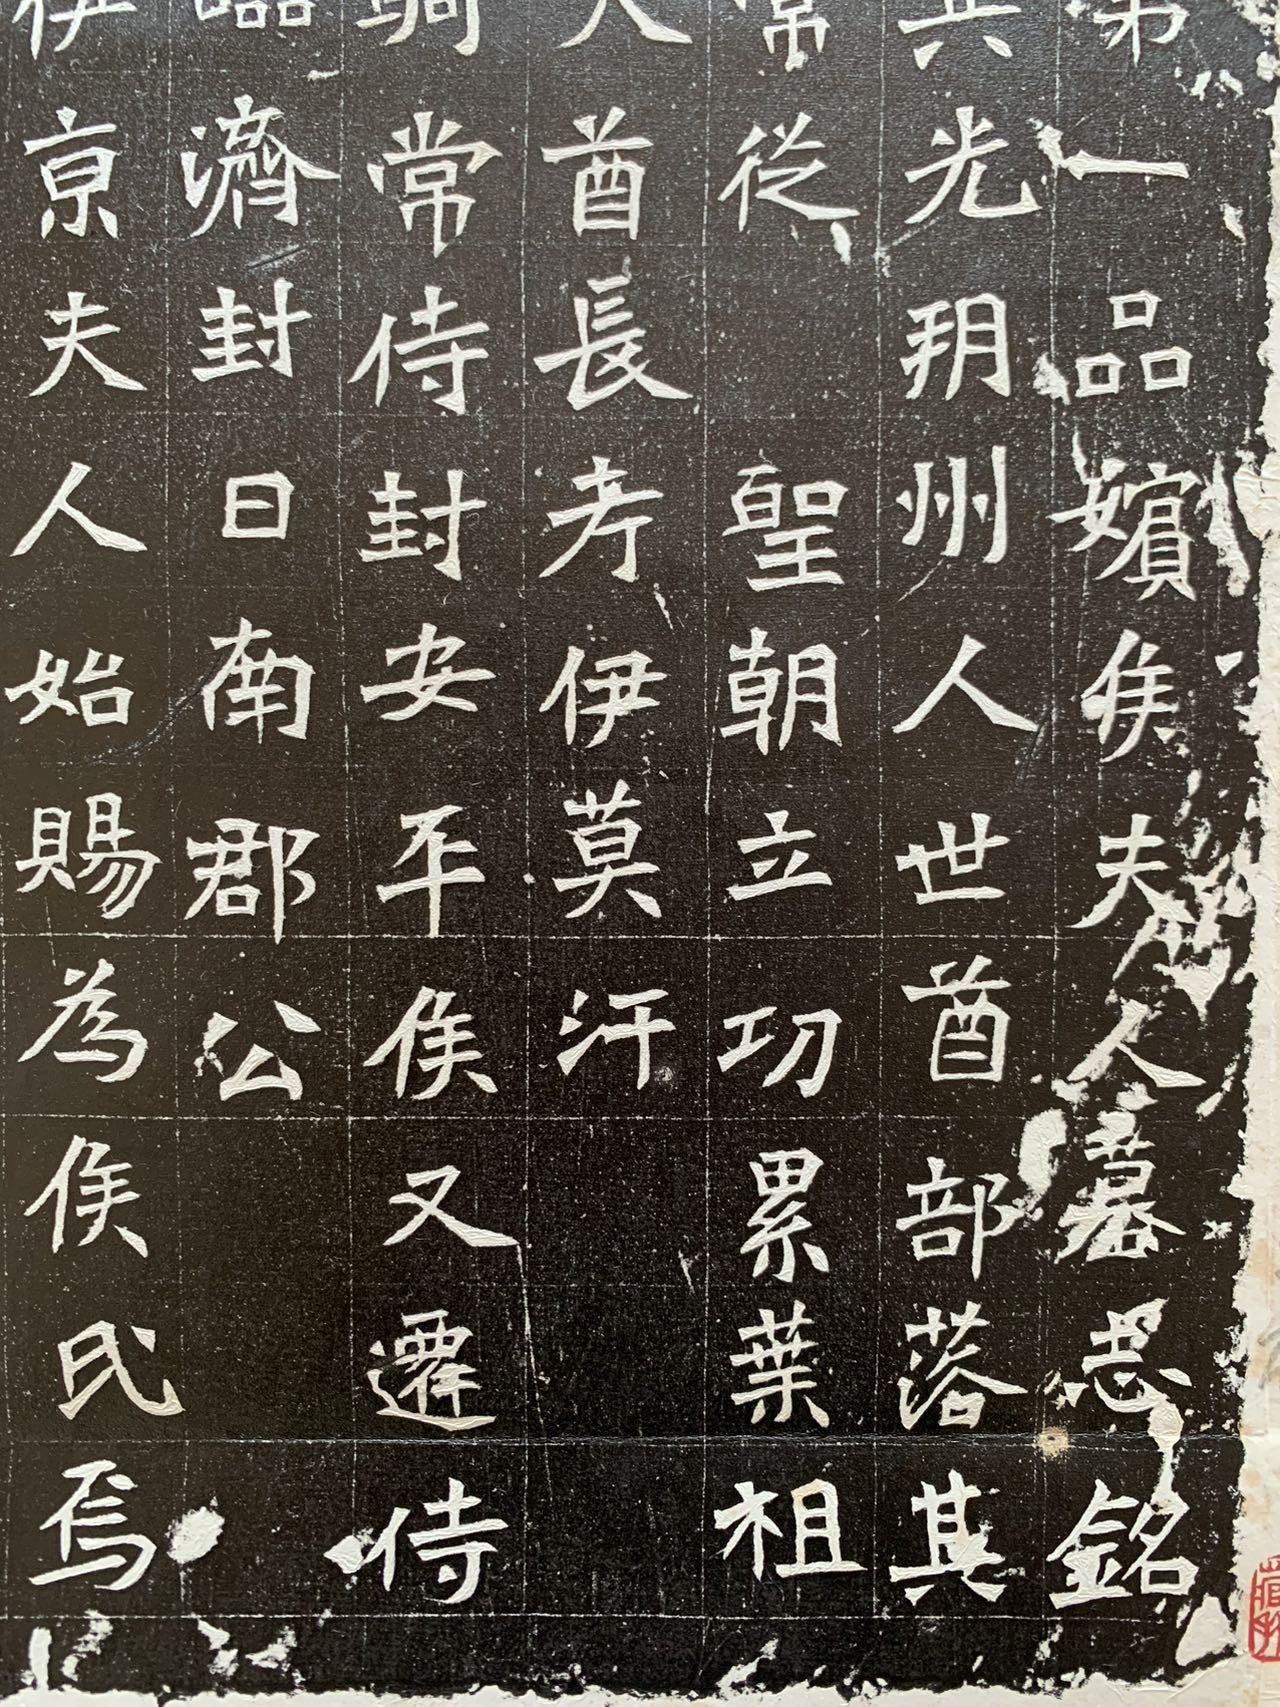 第一品嬪侯夫人墓志銘
兵光玥州人世酋部落其
常從 聖朝立功累葉祖
人酋長考伊莫汗
騎常侍封安平侯又遷侍
臨濟封日南郡公
伊京夫人始賜為侯氏焉